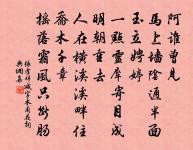 阿誰曾見
馬上墻陰通半面
玉立娉婷
一點靈犀寄目成
明朝重去
人在橫溪溪畔住
喬木千章
搖落霜風只斷腸
張孝祥減字木蘭花詞